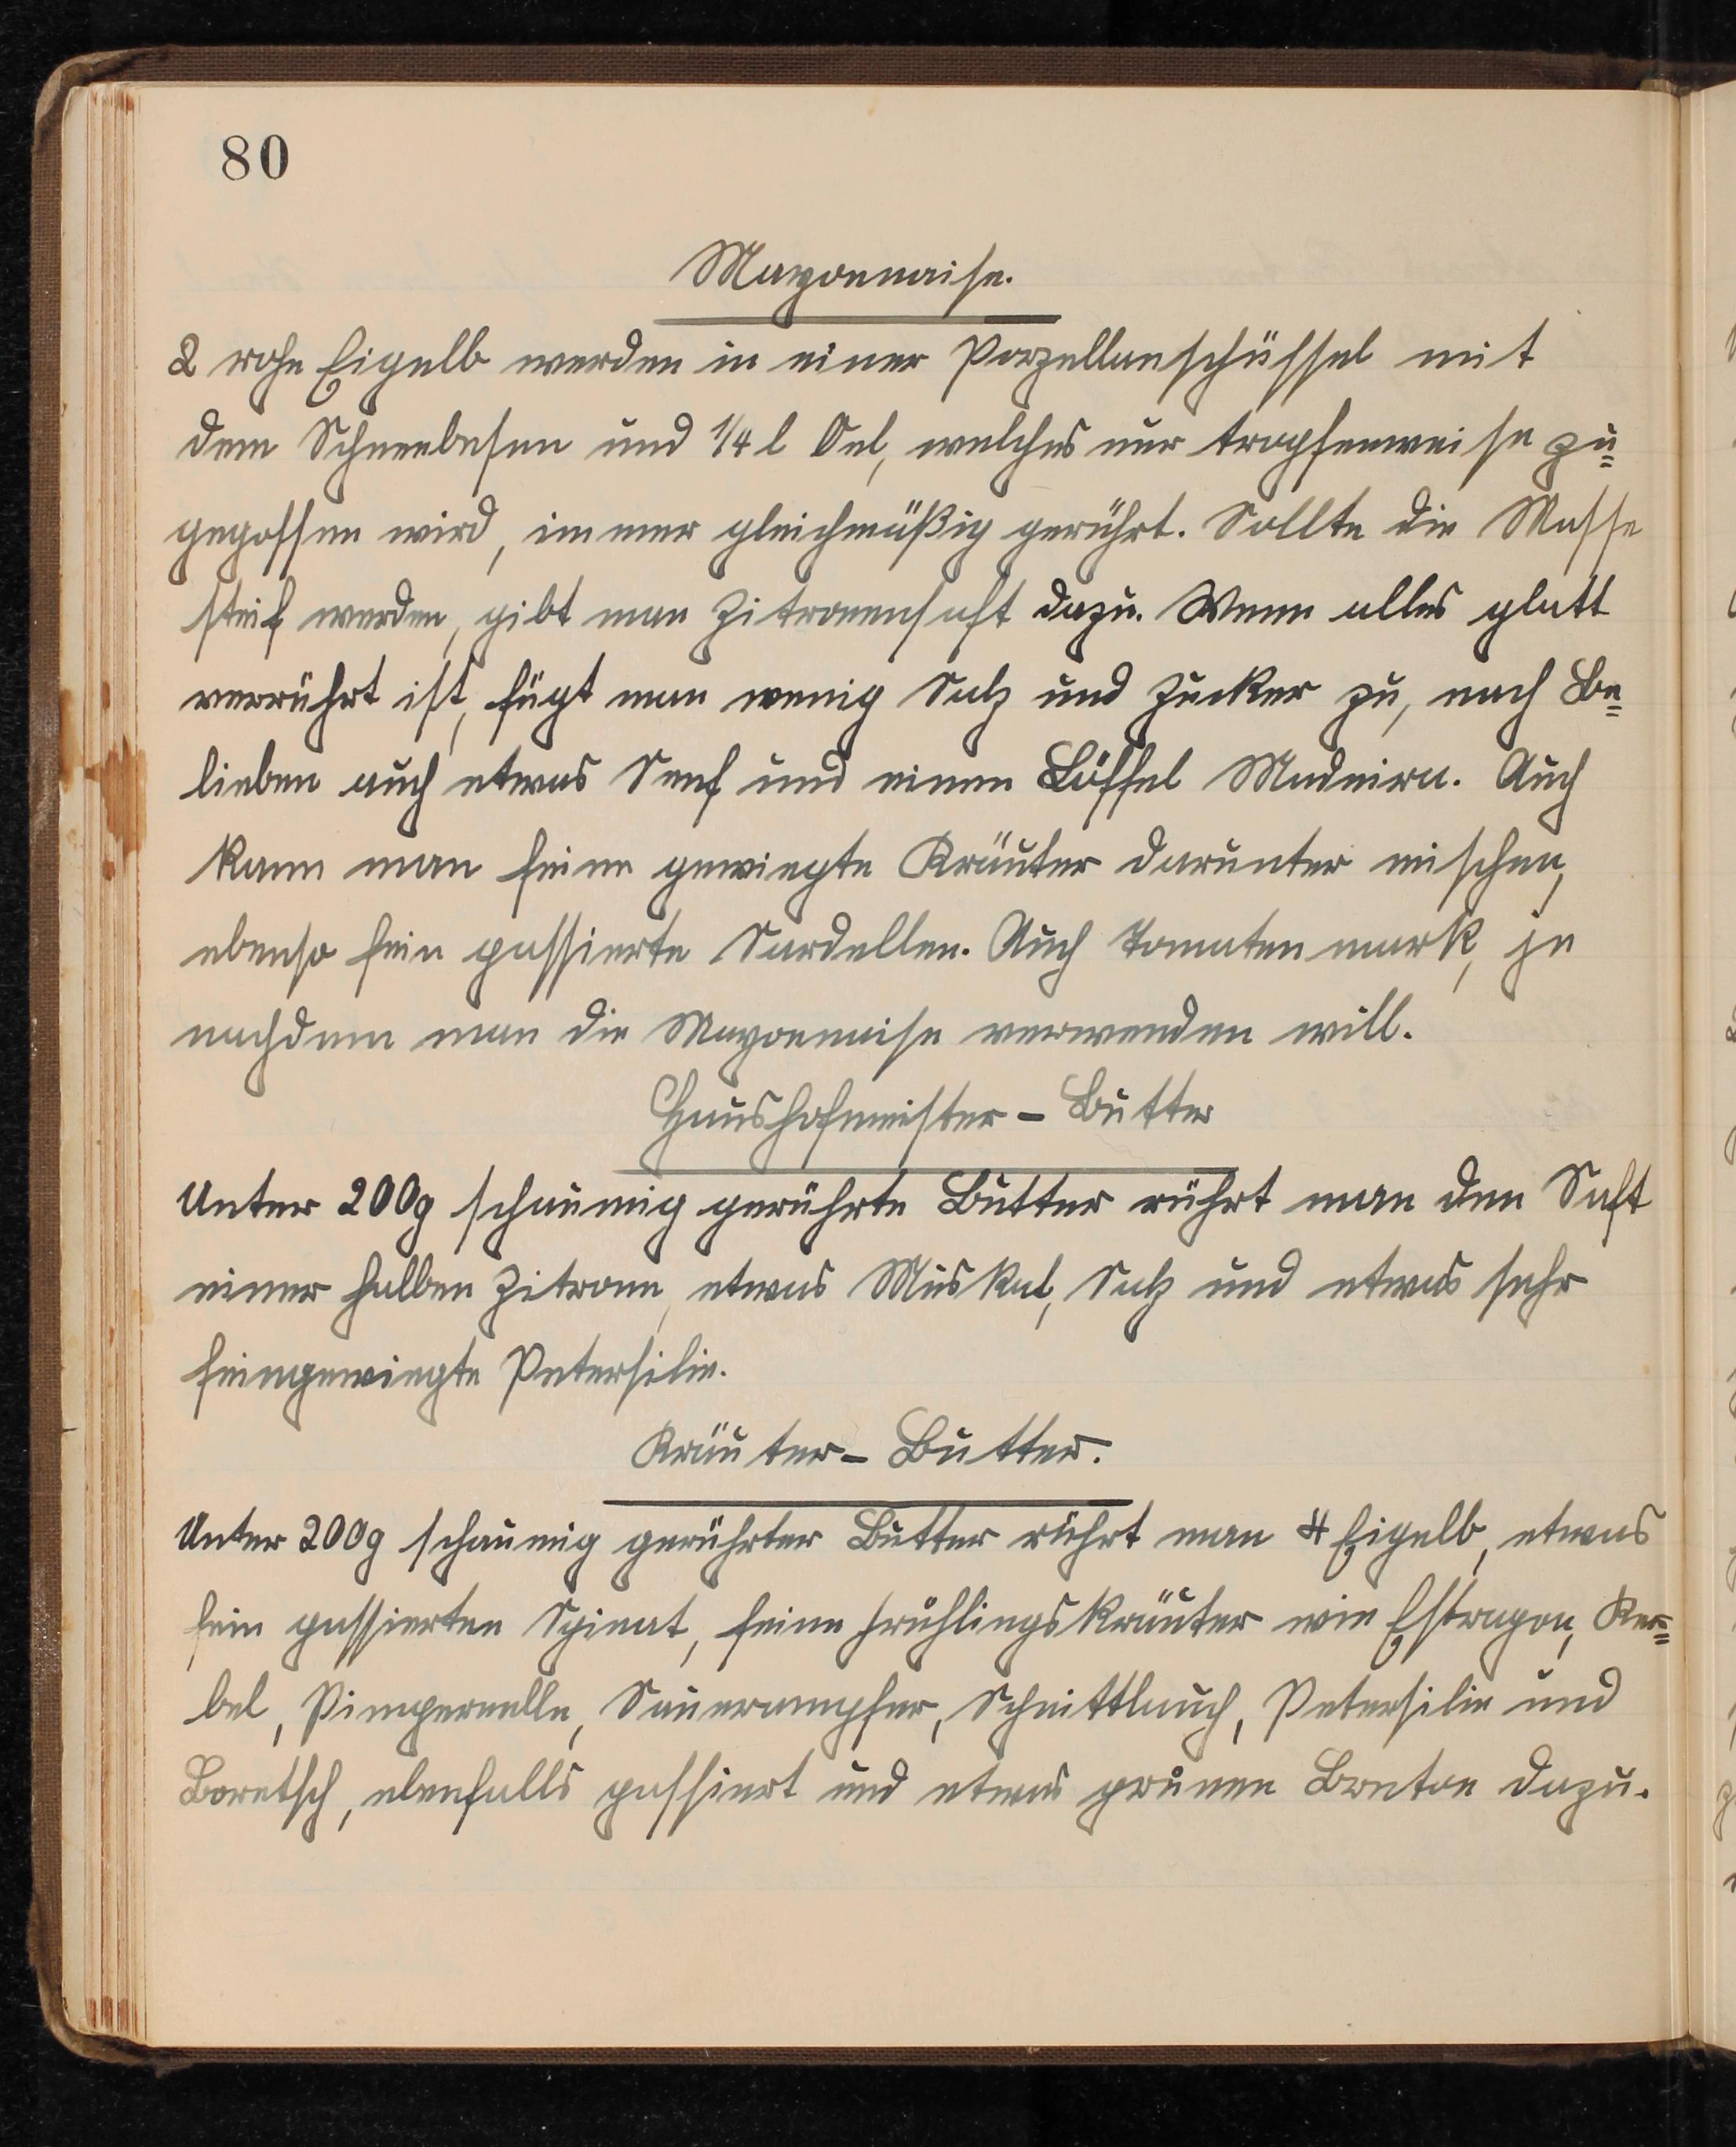 80
Mayonnaise.
2 rohe Eigelb werden in einer Porzellanschüssel mit
dem Schneebesen und 1/4 l Oel, welches nur tropfenweise zu=
gegossen wird, immer gleichmäßig gerührt. Sollte die Masse
steif werden, gibt man Zitronensaft dazu. Wenn alles glatt
verrührt ist, fügt man wenig Salz und Zucker zu, nach Be=
lieben auch etwas Senf und einen Löffel Madeira. Auch
kann man feine gewiegte Kräuter darunter mischen,
ebenso fein passierte Sardellen. Auch Tomatenmark, je
nachdem man die Mayonnaise verwenden will.
Haushofmeister-Butter
Unter 200g schaumig gerührte Butter rührt man den Saft
einer halben Zitrone, etwas Muskat, Salz und etwas sehr
feingewiegte Petersilie.
Kräuter-Butter.
Unter 200g schaumig gerührter Butter rührt man 4 Eigelb, etwas
fein passierten Spinat, feine Frühlingskräuter wie Estragon, Ker=
bel, Pimpernelle, Sauerampfer, Schnittlauch, Petersilie und
Boretsch, ebenfalls passiert und etwas grünen Breton dazu.